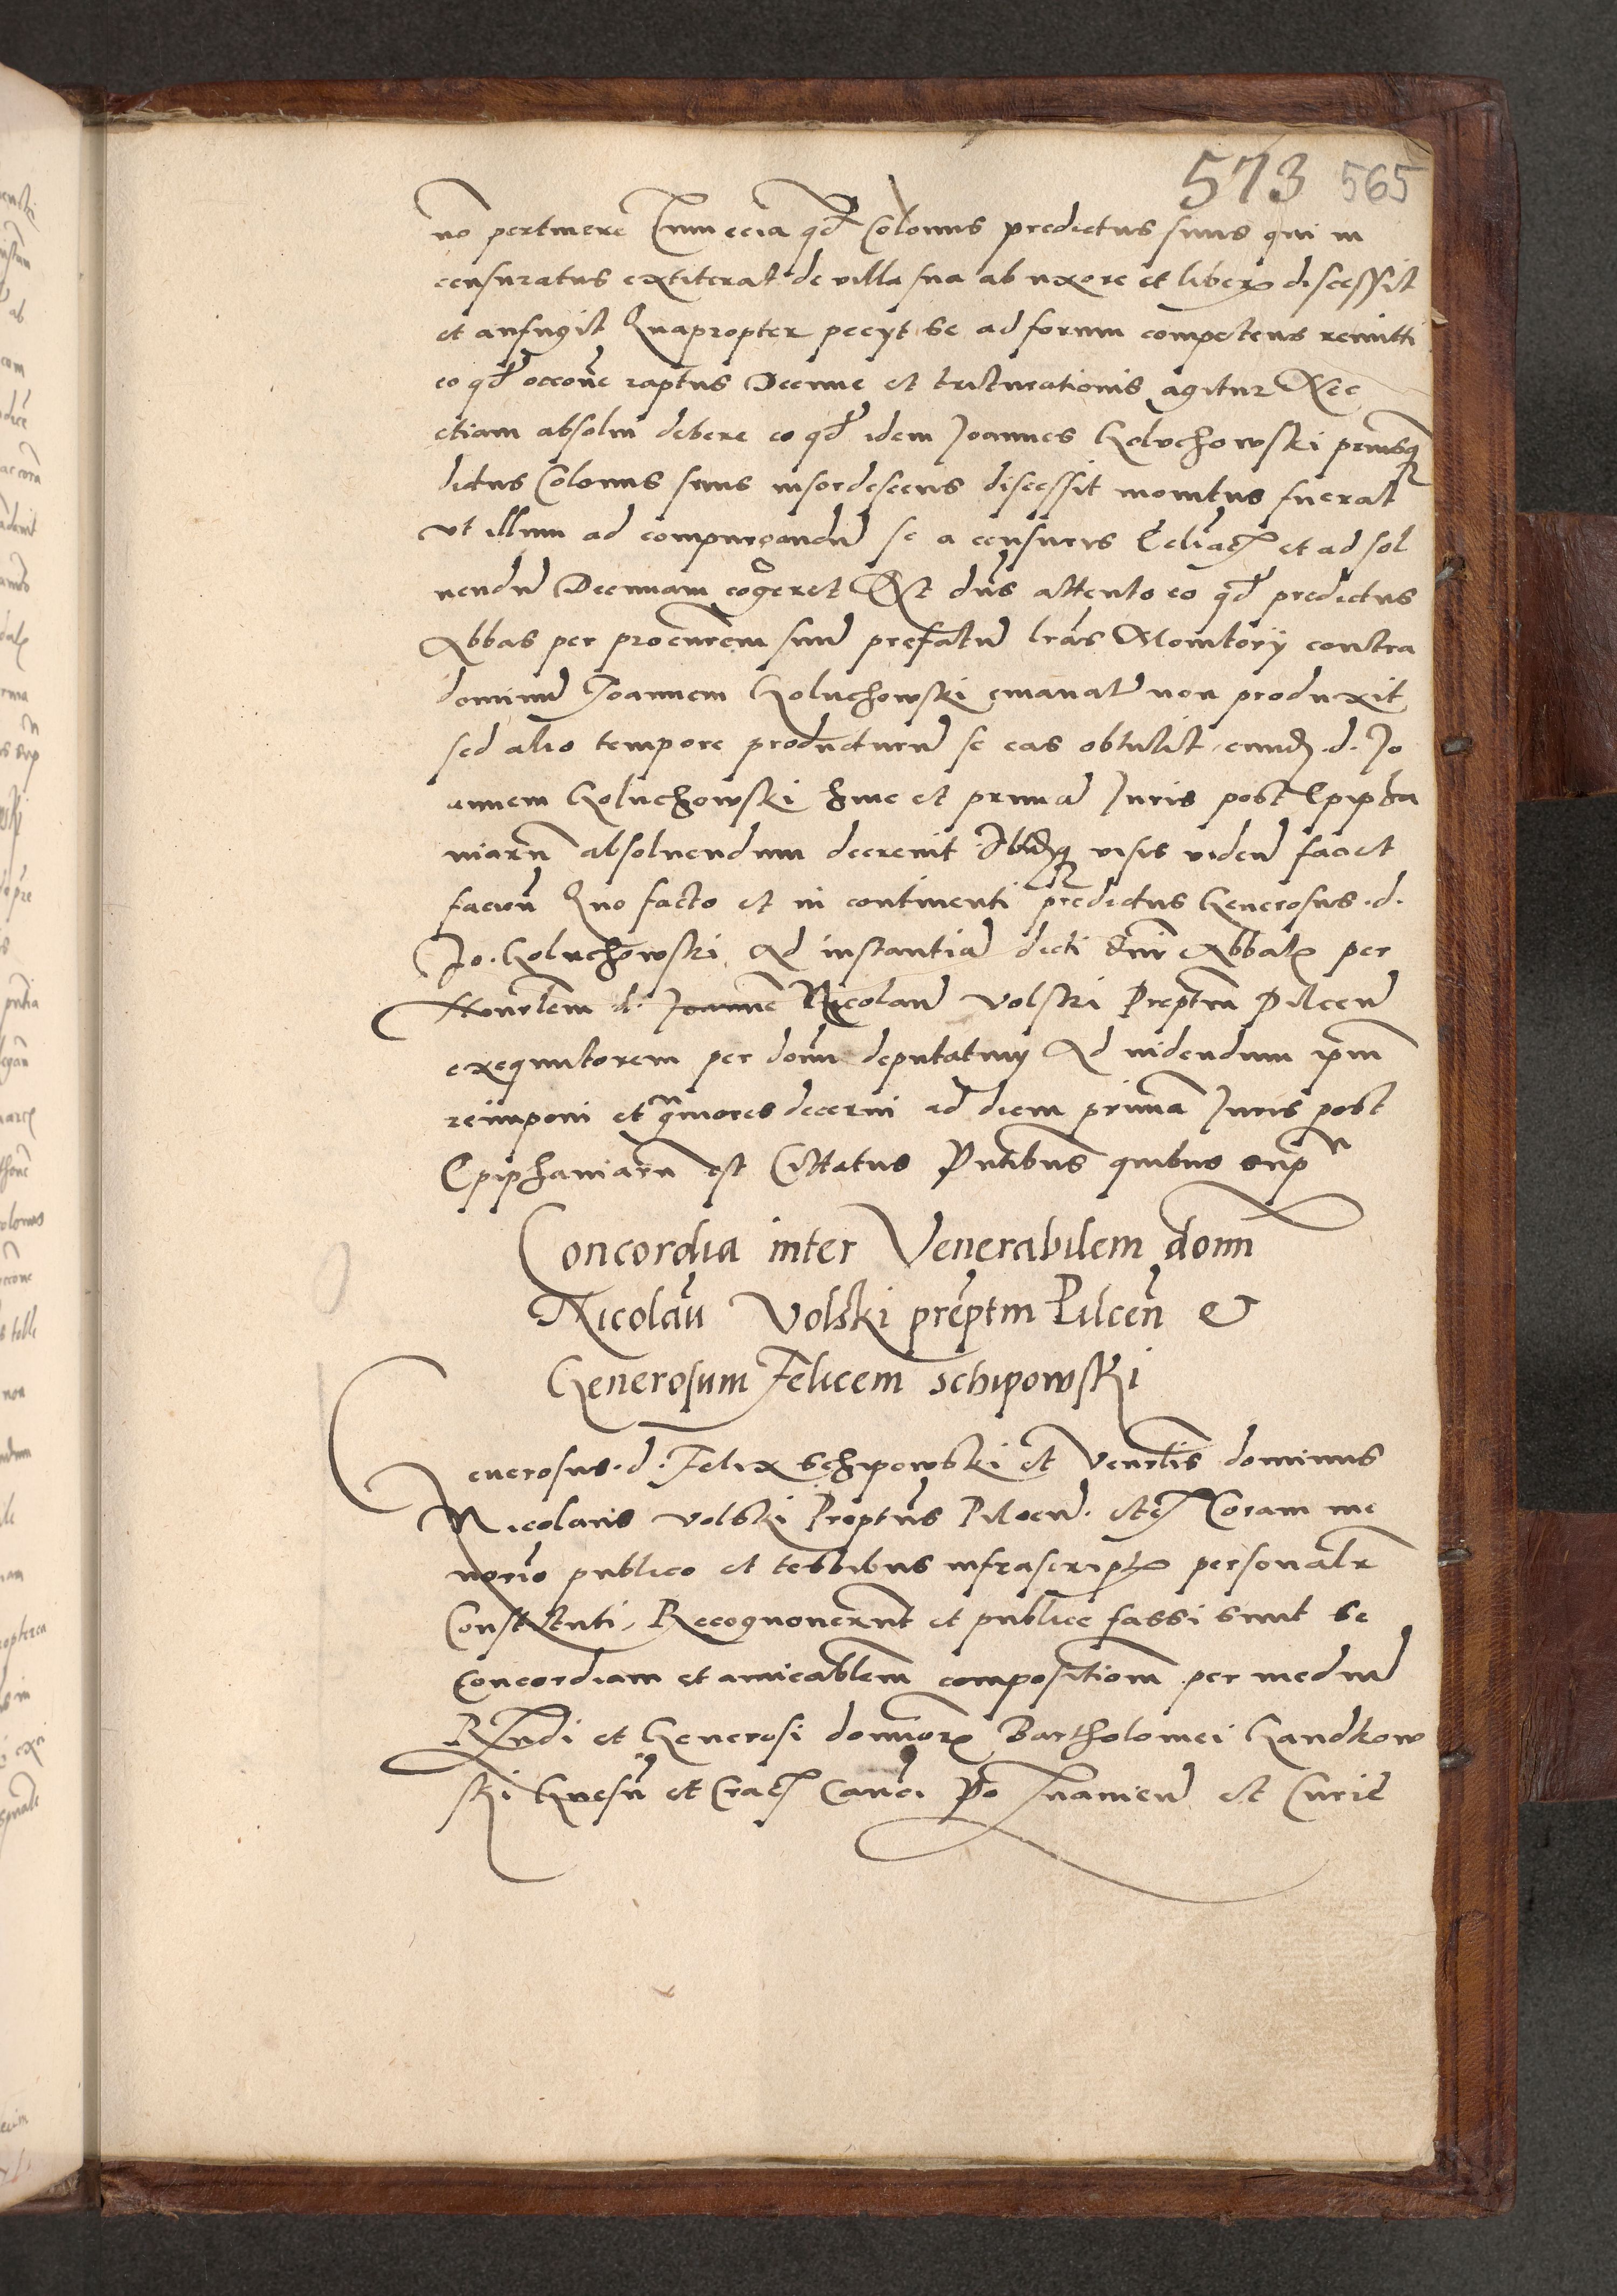 573 565
no pertinere Tum ecia qd Colonus predictus suus qui in
censuratus extiterat de villa sua ab uxore et liberis discessit
et aufugit Quapropter pecyt se ad forum competens remitti
eo qd occone raptus Decime et triturationis agitur Nec
etiam absolui debere eo qd idem Joannes Goluchowski priusq
dictus Colonus suus insordescens discessit monitus fuerat
vt illum ad compurgandu se a censuris et ad sol
uendu Decimam cogeret Et dns attento eo qd predictus
Abbas per procurem suu prefatu lras Monitorij contra
dominu Joannem Goluchowski emanat non produxit
sed alio tempore producturu se eas obtulit eund d. Jo
annem Goluchowski hinc et prima Juris post Epipha
niaru absoluendum decreuit visis viden facet
facion Quo facto et in continenti predictus Generosus .d.
Jo. Goluchowski Ad instantia dicti dni Abbatis per
Honrlem d. Joanne Nicolau Volski Preptm Pilcen
exequutorem per donu deputatum Ad uidendum
reimponi et gmores decerni ad diem prima Juris post
Epiphaniaru est Cittatus Pntibus quibus sup
Concordia inter Venerabilem donn
Nicolau Volski preptm Pilcen &
Generosum Felicem schipowski
Generosus .d. Felix Schipowski et Venrlis dominus
Nicolaus Volski Preptus Pilcen. etc Coram me
norio publico et testibus infrascriptis personalr
Constituti, Recognouerunt et publice fassi sunt se
Concordiam et amicablem compositionm per mediu
Rndi et Generosi domiorum Bartholomei Gandkow
ski Gnesn et Crac Canci Poznanien et Curie